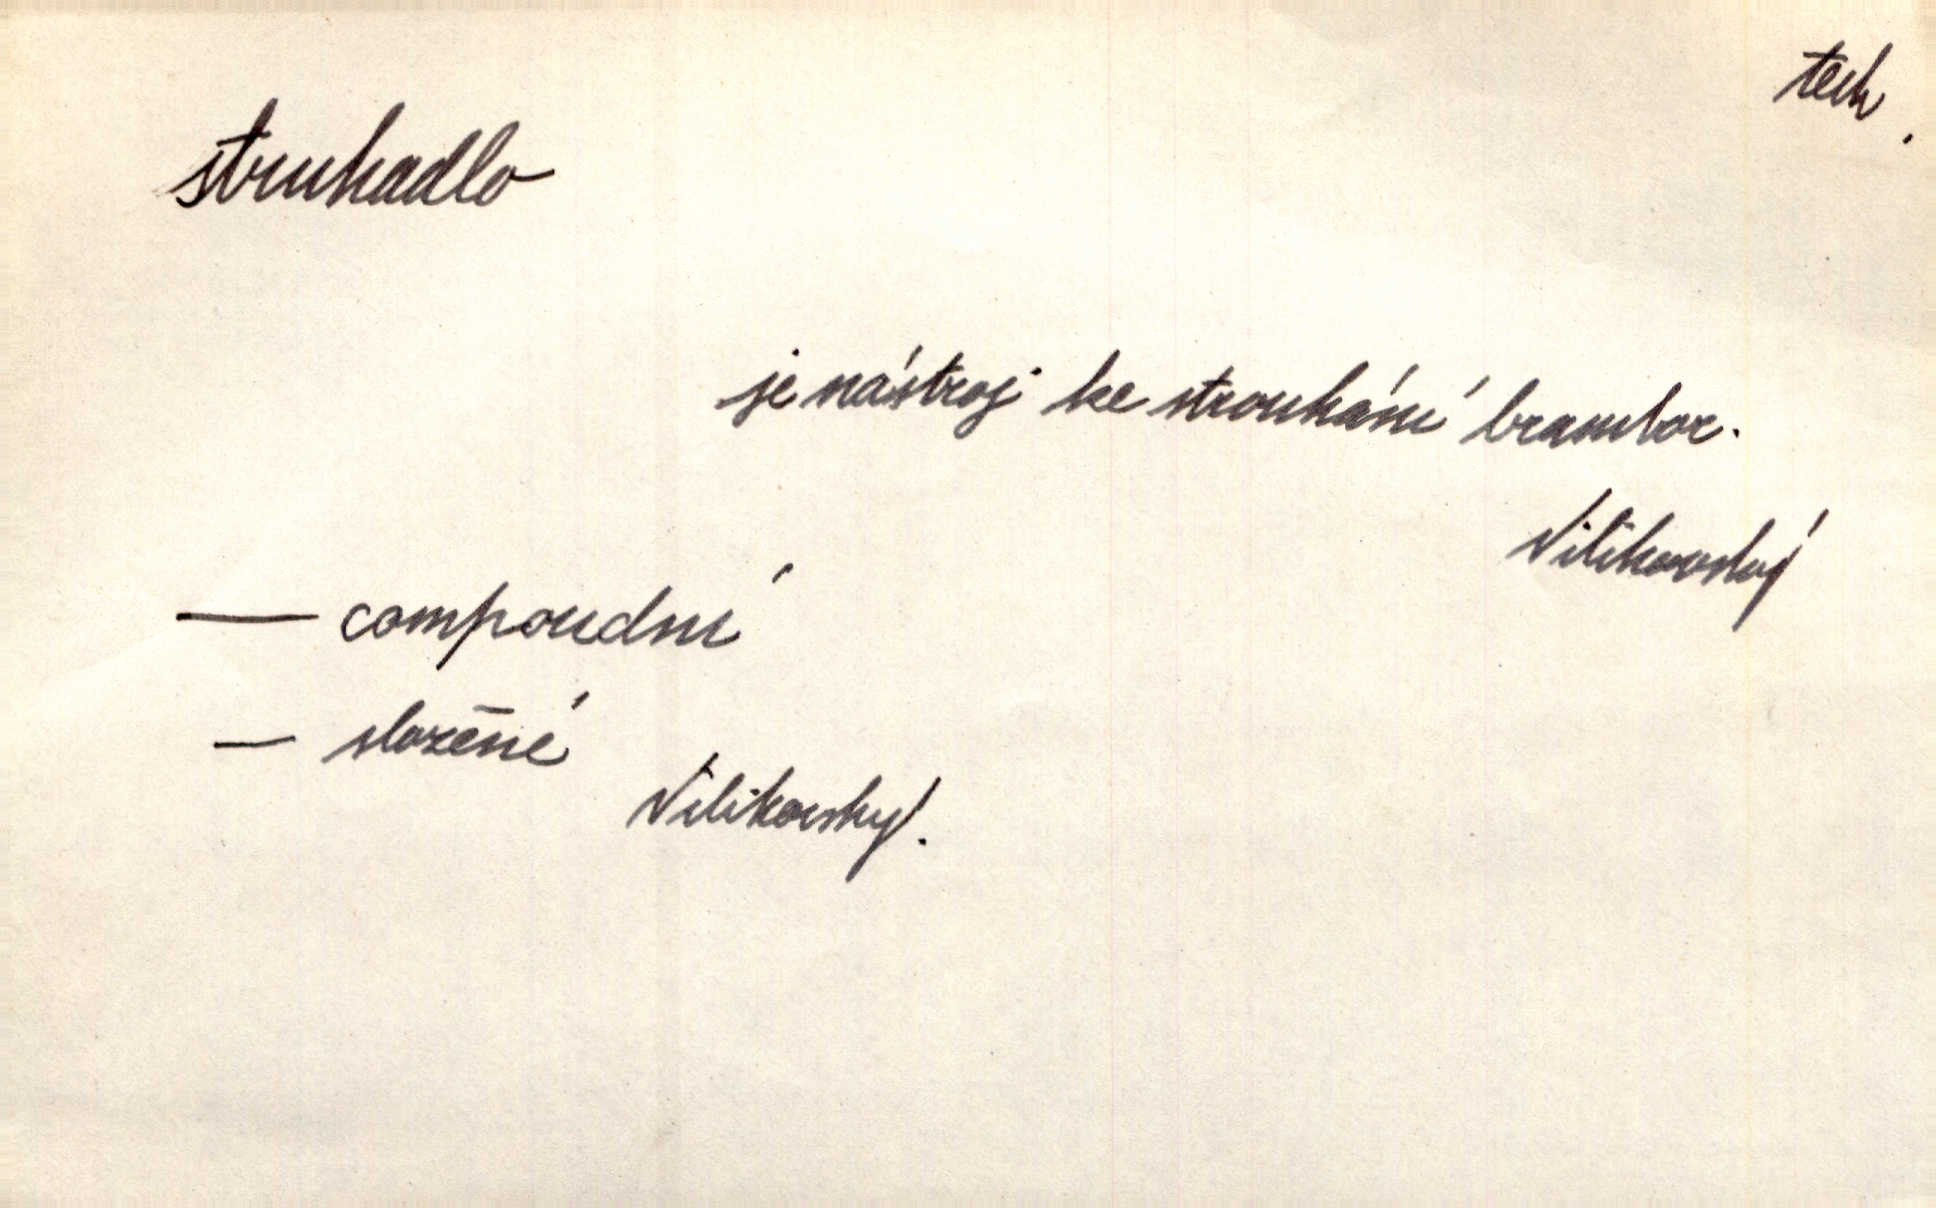 tech.
struhadlo
je nástroj ke strouhání brambor.
Vilikovský
— compoudní
— složené
Vilikovský.